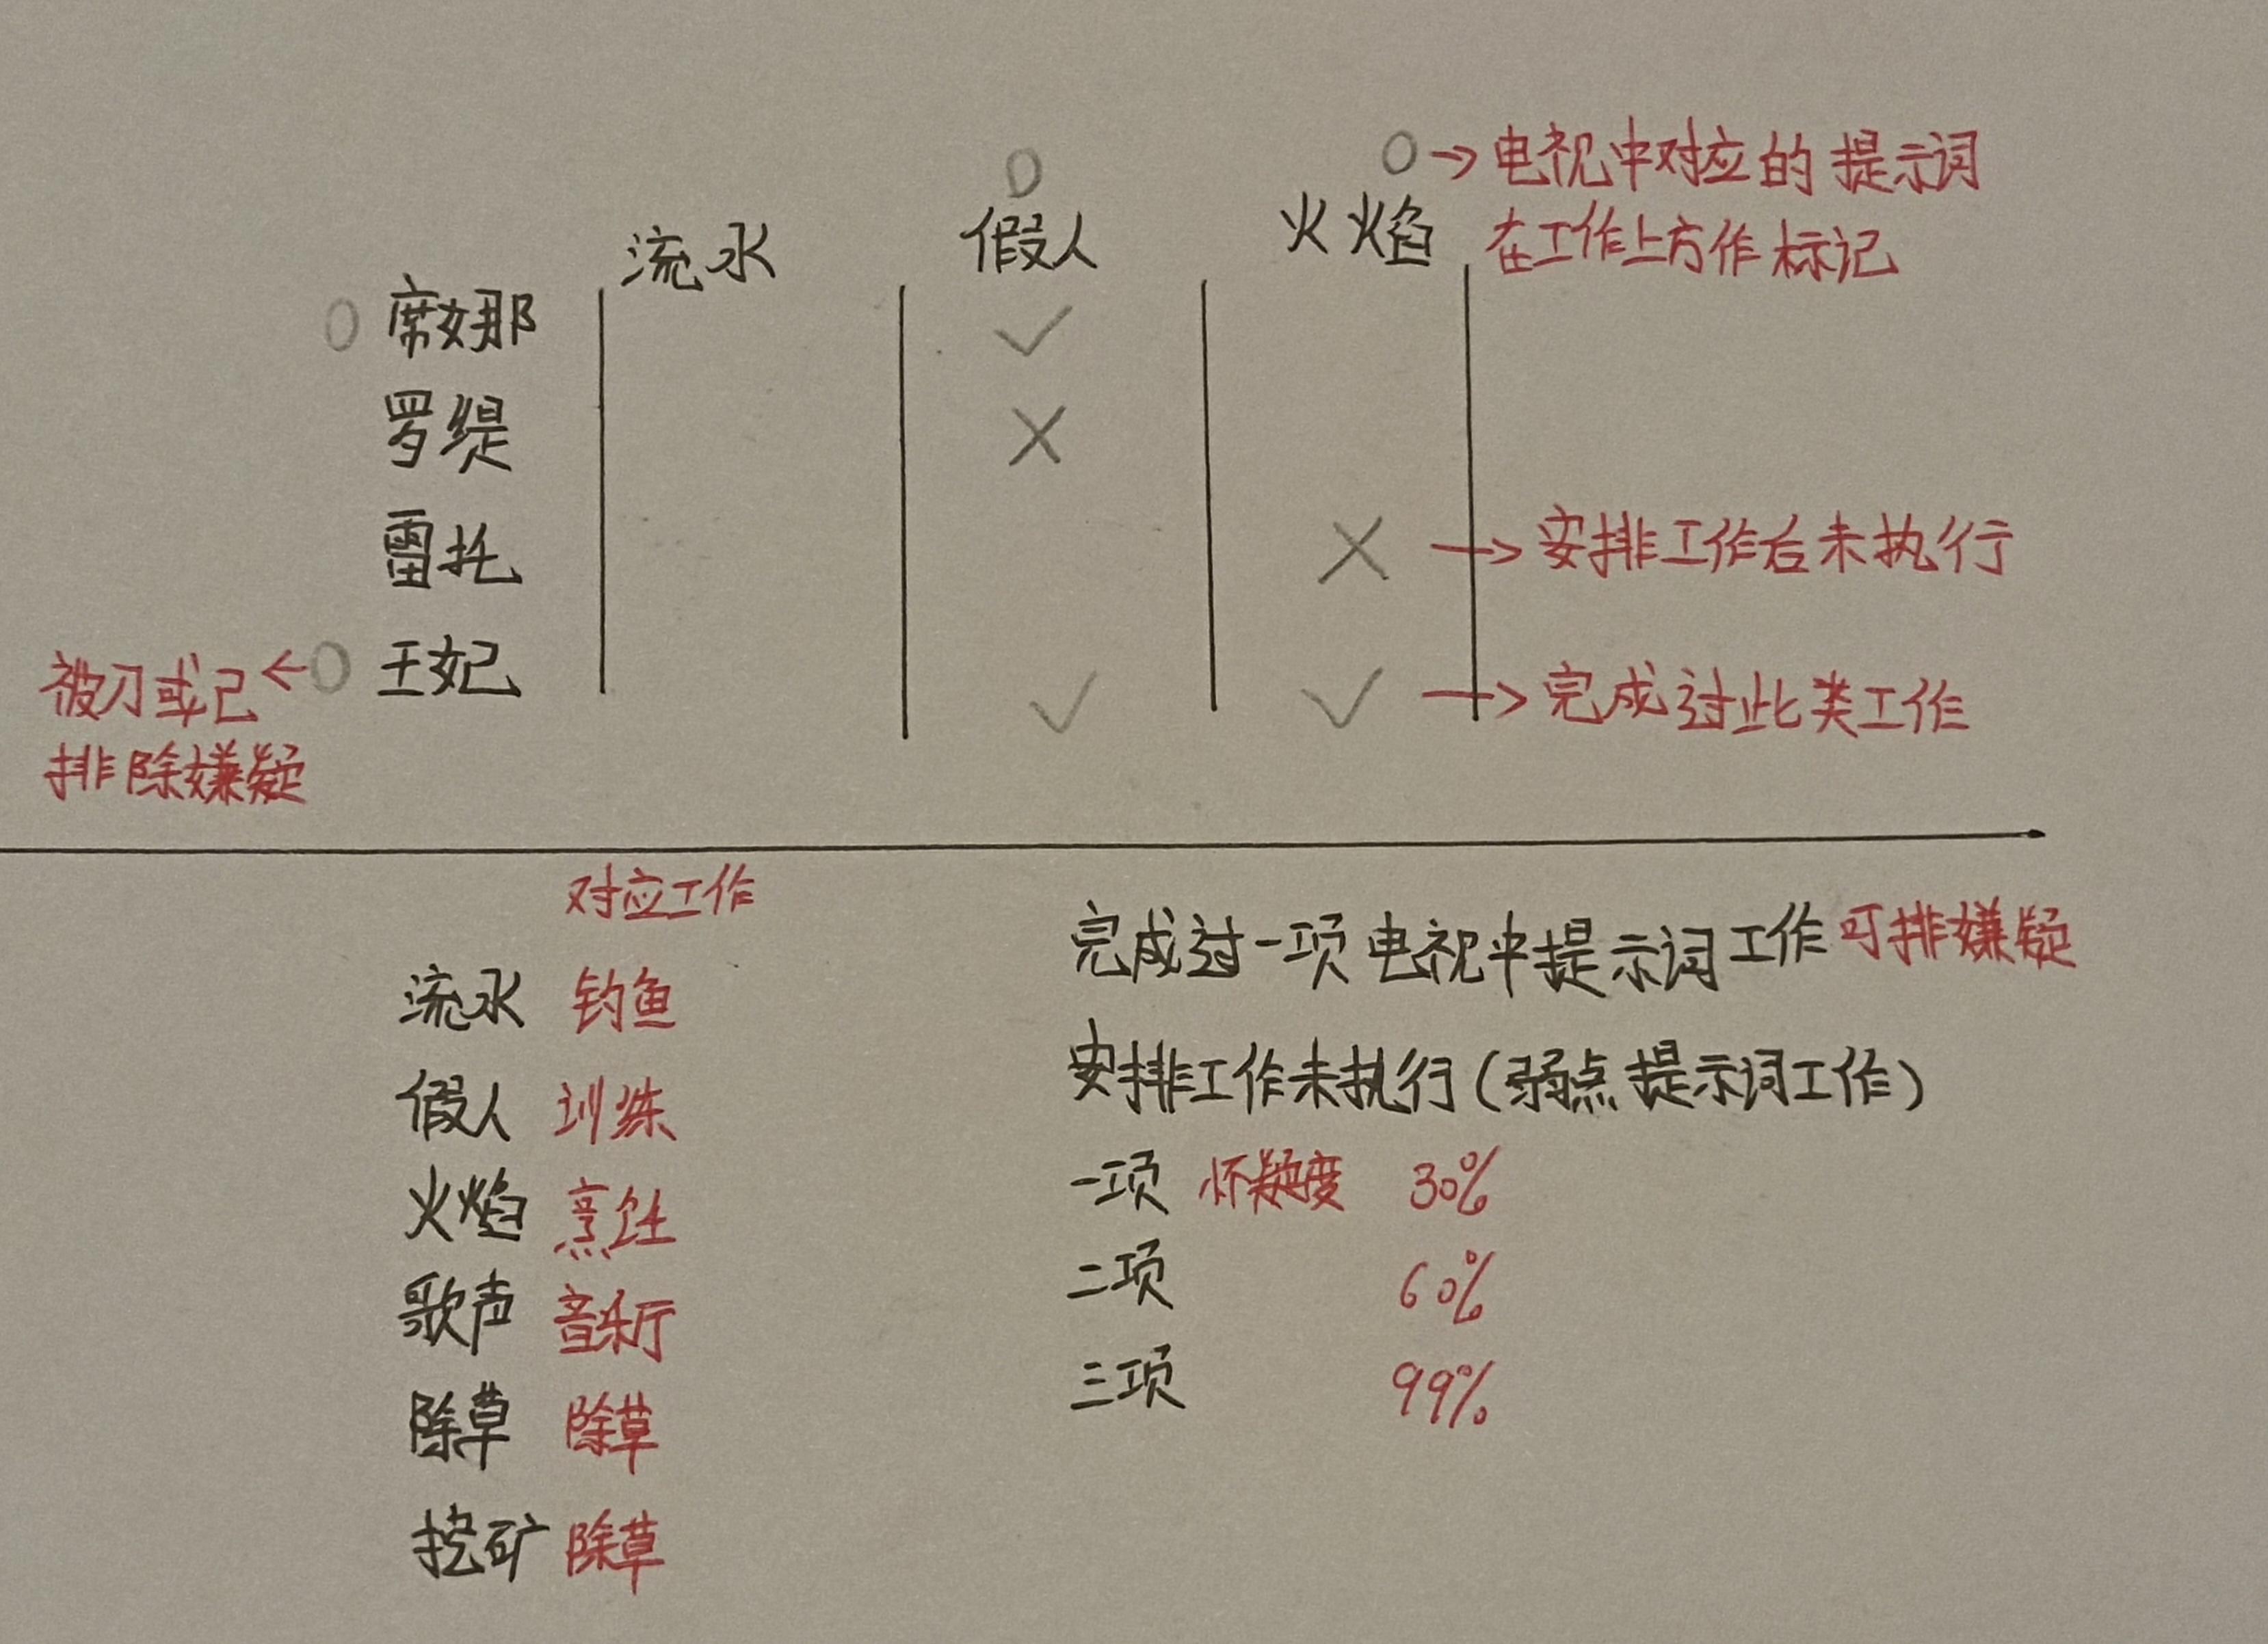 O → 电视中对应的提示词
在工作上方作标记
流水 假人 火焰
席娜 ✓
罗缇 ×
雷托 × → 安排工作后未执行
王妃 ✓ ✓ → 完成过此类工作
被刀或已
排除嫌疑
对应工作
流水 钓鱼
假人 训练
火焰 烹饪
歌声 音乐厅
除草 除草
挖矿 除草
完成过一项电视中提示词工作可排嫌疑
安排工作未执行(弱点提示词工作)
一项 怀疑度 30%
二项 60%
三项 99%